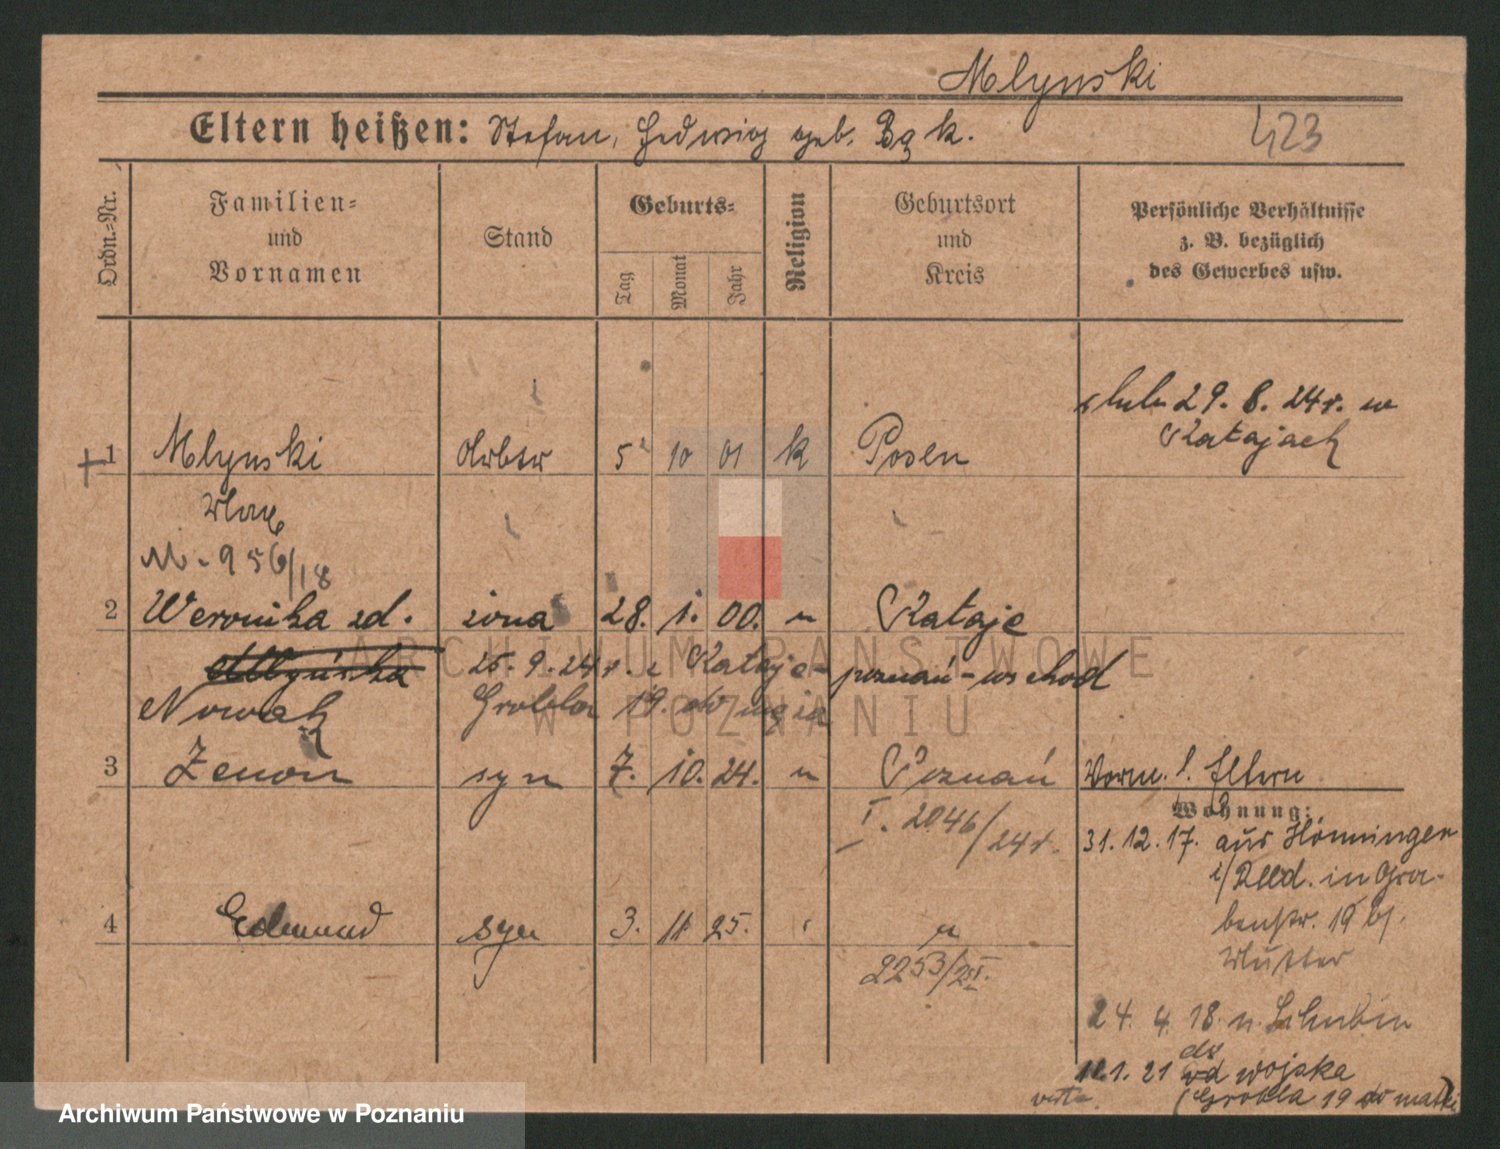 Mlynski
Eltern heißen: Stefan, Hedwig geb. Bąk.
423
Ordn.-Nr.
Familien-
und
Vornamen
Stand
Geburts-
Tag
Monat
Jahr
Religion
Geburtsort
und
Kreis
Persönliche Verhältnisse
z. B. bezüglich
des Gewerbes usw.
ślub 29. 8. 24 r. w
Ratajach
1 Mlynski Arbtr 5 10 01 k Posen
Max
M. 956/18
2 Weronika zd. żona 28. 1. 00. " Rataje
Młyńska 25. 9. 24 r. z Rataje - poznań - wschod
Nowak Grobla 19. do męża
3 Zenon syn 7. 10. 24. " Poznań
I. 2046/24 r.
Vorm. s. Eltern
Wohnung:
31. 12. 17. aus Hönningen
i/Rhld. in Gra-
benstr. 19 bj.
Mutter
4 Edmund syn 3. 11. 25. "
2253/25 I.
24. 4. 18. n. Schubin
11. 1. 21 od wojska
Grobla 19 do matki
verte.
ARCHIWUM PAŃSTWOWE
W POZNANIU
Archiwum Państwowe w Poznaniu